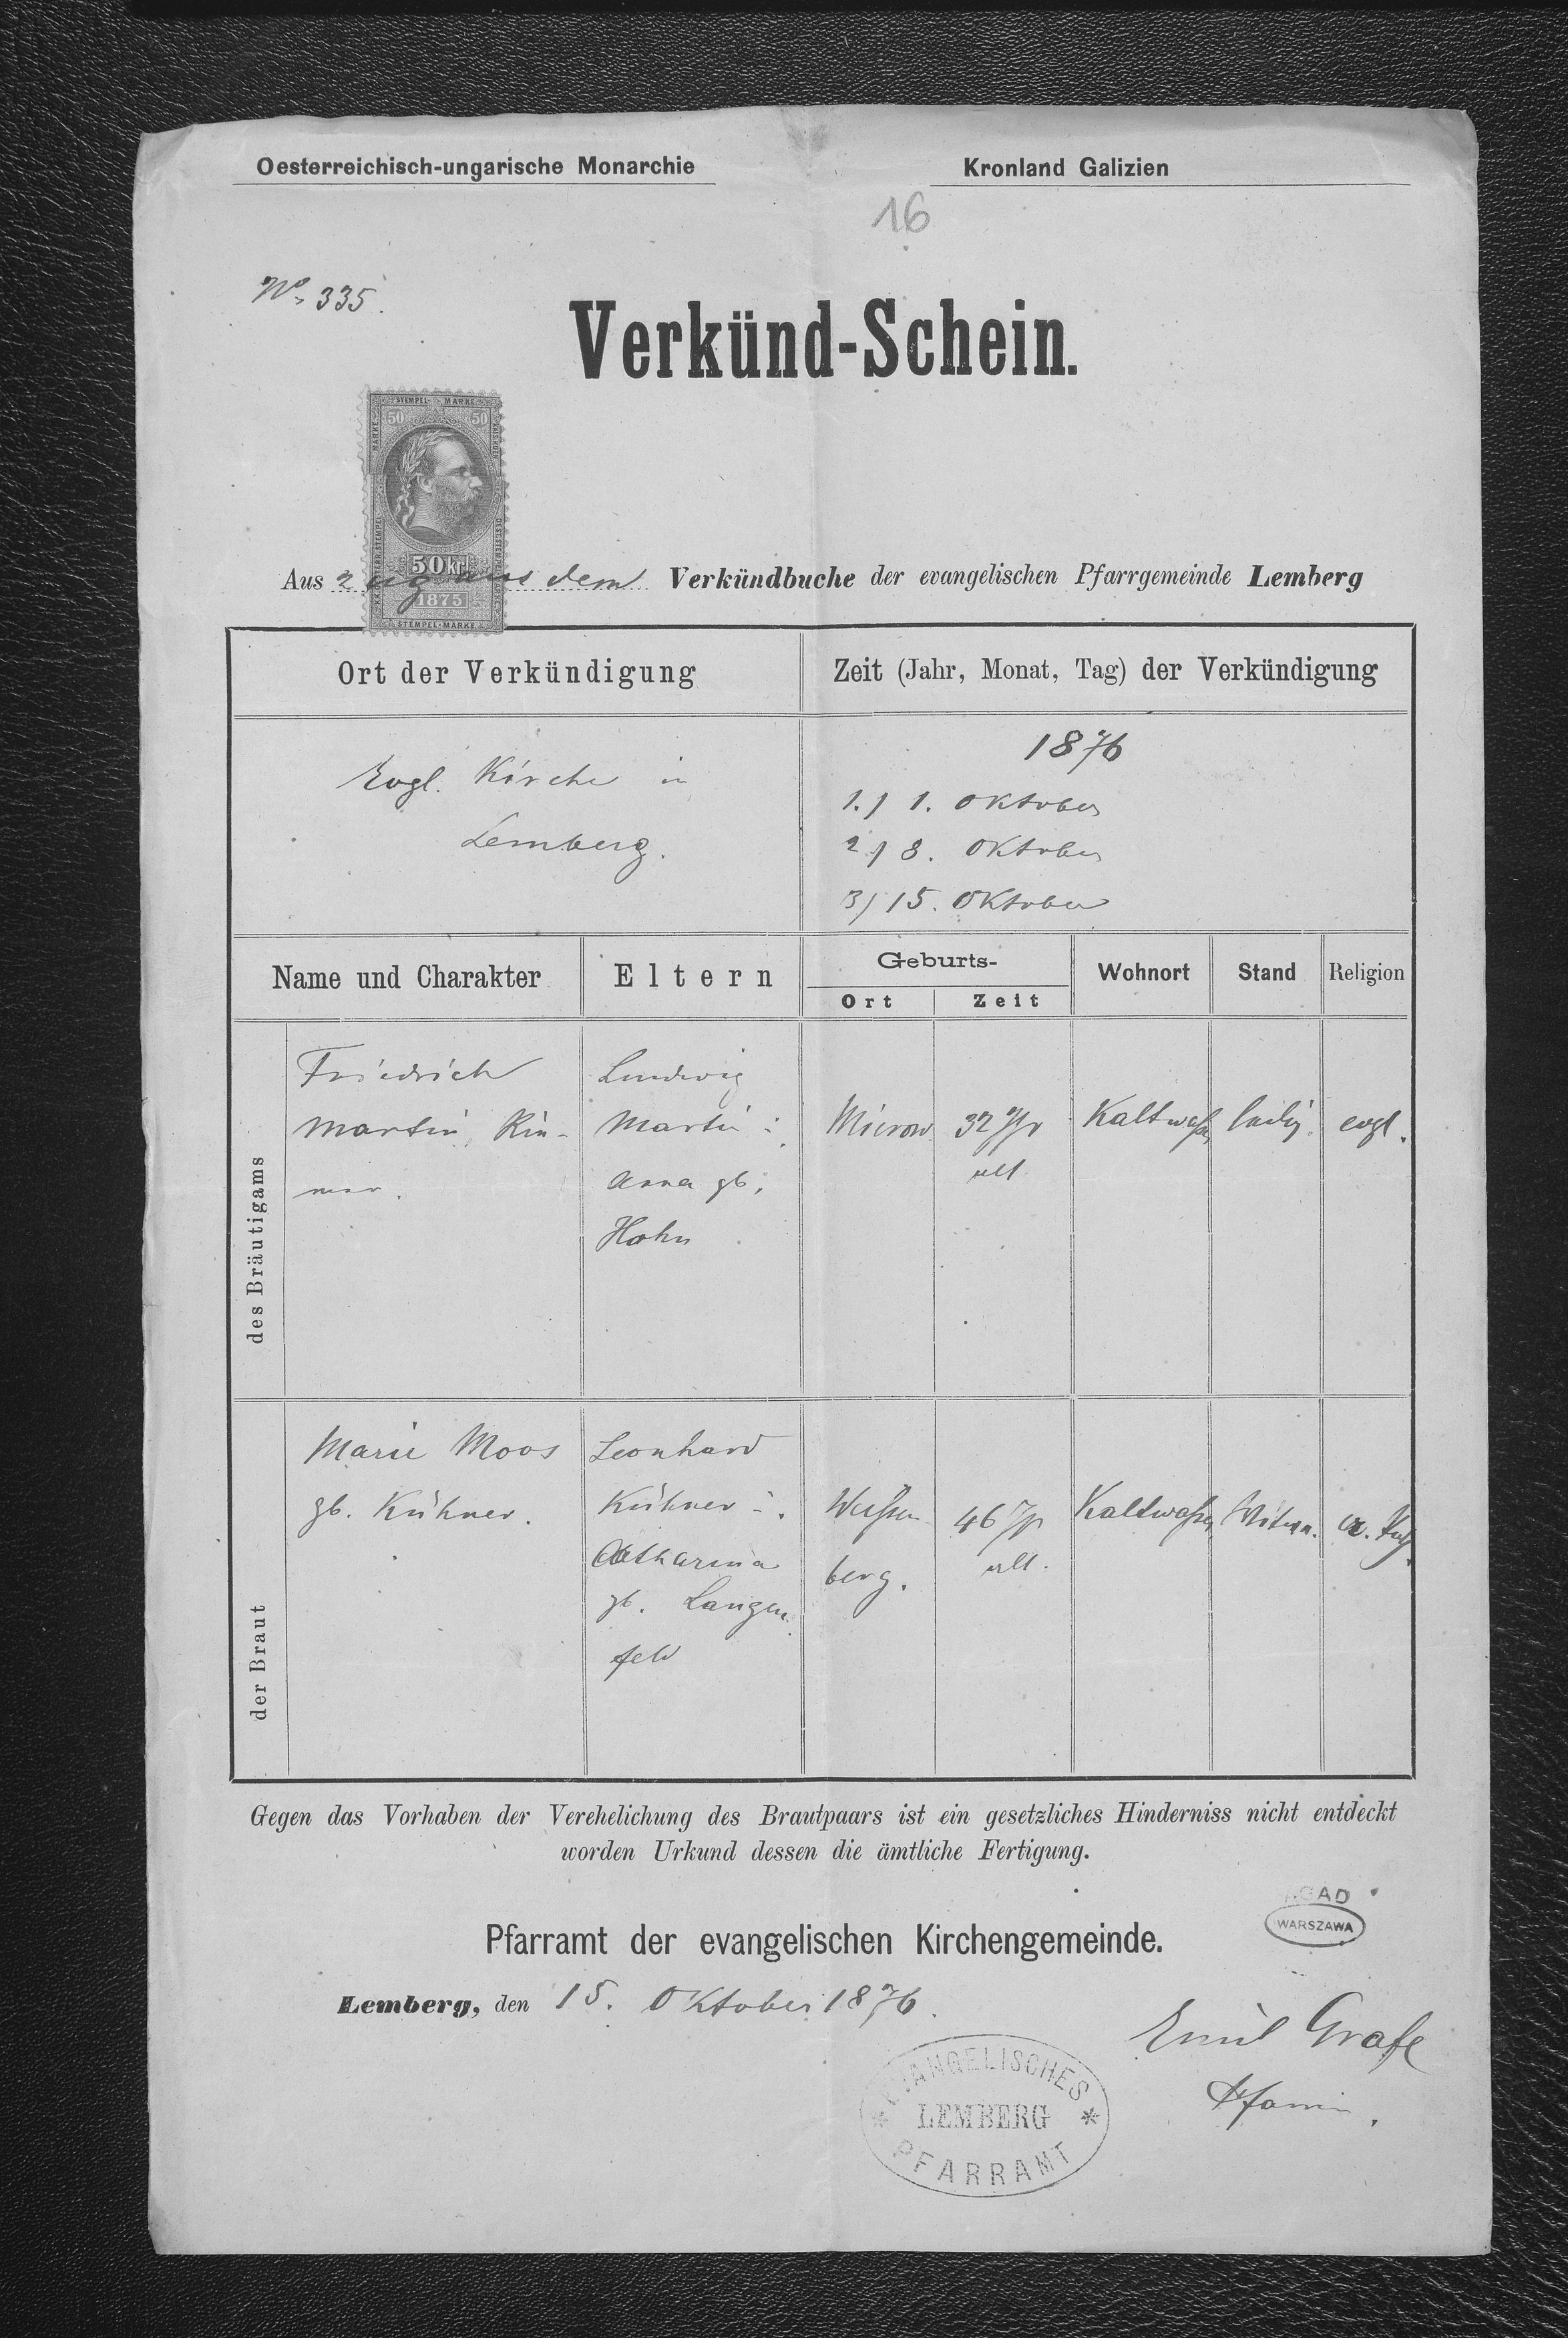 Oesterreichisch-ungarische Monarchie
Kronland Galizien
16
No. 335.
Verkünd-Schein.
STEMPEL MARKE
50 50
50 kr
1875
STEMPEL-MARKE
Aus zug aus dem Verkündbuche der evangelischen Pfarrgemeinde Lemberg
Ort der Verkündigung
Zeit (Jahr, Monat, Tag) der Verkündigung
Evgl. Kirche in
Lemberg.
1876
1.) 1. Oktober
2.) 8. Oktober
3) 15. Oktober
Name und Charakter
Eltern
Geburts-
Ort
Zeit
Wohnort
Stand
Religion
des Bräutigams
Friedrich
Martin,
Ludwig
Martin
Anna gb.
Hahn
32
alt
Kaltwasser
ledig.
evgl.
der Braut
Marie Moos
gb. Kühner.
Leonhard
Kühner
Catharina
gb. Langen
feld
Weissen
berg.
46
alt.
Kaltwasser
Witwe.
Gegen das Vorhaben der Verehelichung des Brautpaars ist ein gesetzliches Hinderniss nicht entdeckt
worden Urkund dessen die ämtliche Fertigung.
AGAD
WARSZAWA
Pfarramt der evangelischen Kirchengemeinde.
Lemberg, den 15. Oktober 1876.
Emil Grafe
Pfarrer.
EVANGELISCHES
* LEMBERG *
PFARRAMT